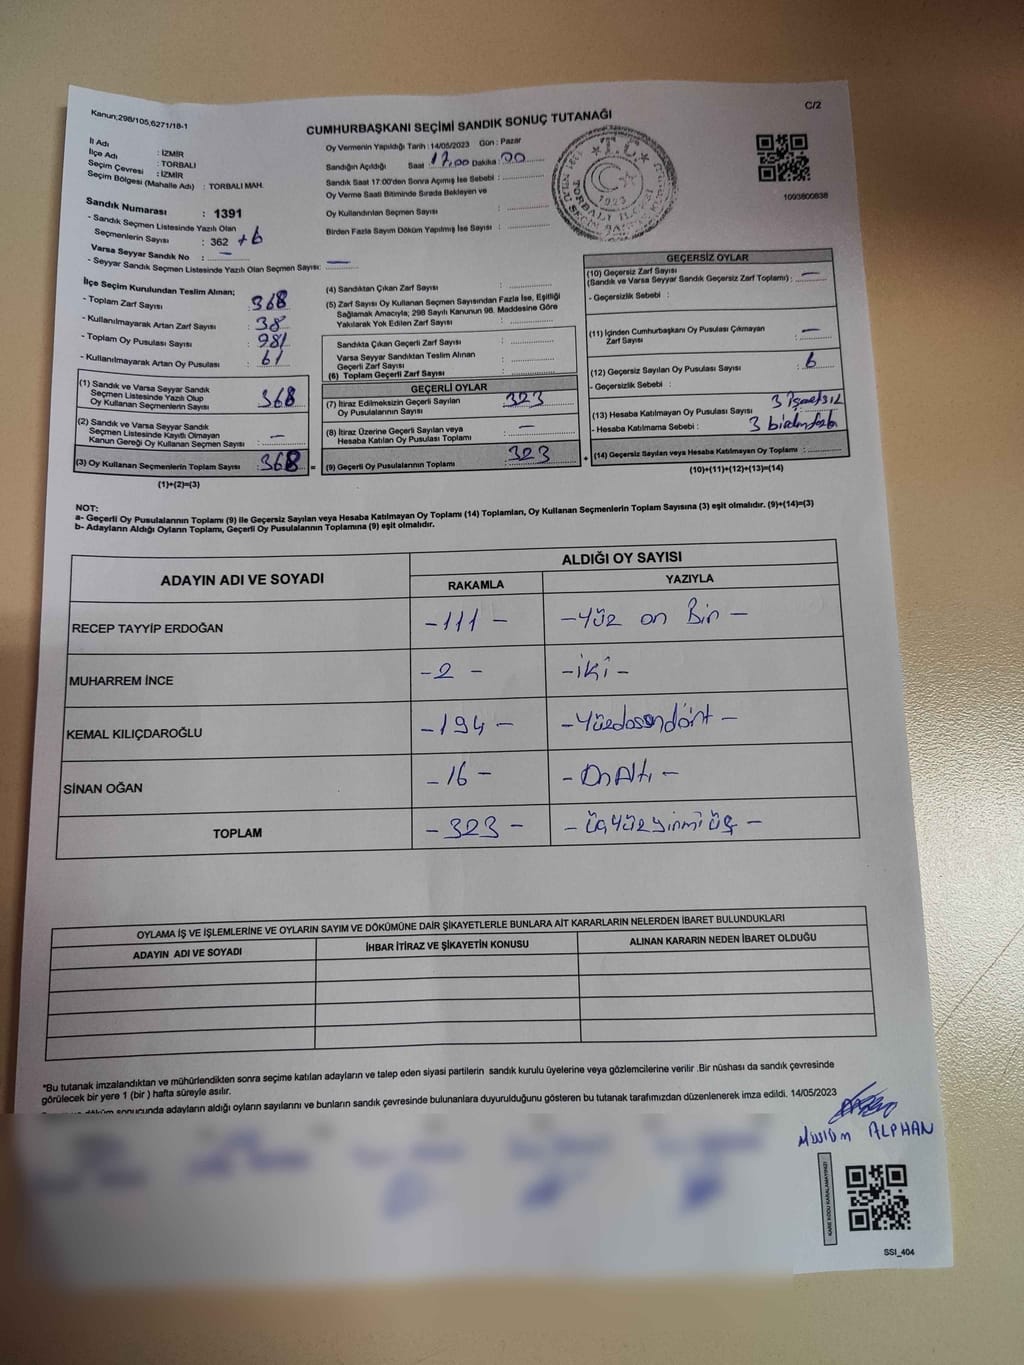 Kanun;298/105,6271/18-1
C/2
CUMHURBAŞKANI SEÇİMİ SANDIK SONUÇ TUTANAĞI
İl Adı : İZMİR
İlçe Adı : TORBALI
Seçim Çevresi : İZMİR
Seçim Bölgesi (Mahalle Adı) : TORBALI MAH.
Sandık Numarası : 1391
- Sandık Seçmen Listesinde Yazılı Olan
Seçmenlerin Sayısı : 362 +6
Varsa Seyyar Sandık No : —
- Seyyar Sandık Seçmen Listesinde Yazılı Olan Seçmen Sayısı: —
Oy Vermenin Yapıldığı Tarih : 14/05/2023 Gün : Pazar
Sandığın Açıldığı Saat 17.00 Dakika : 00
Sandık Saat 17:00'den Sonra Açımış İse Sebebi :
Oy Verme Saati Bitiminde Sırada Bekleyen ve
Oy Kullandırılan Seçmen Sayısı :
Birden Fazla Sayım Döküm Yapılmış İse Sayısı :
T.C.
1923
1093800838
İlçe Seçim Kurulundan Teslim Alınan;
- Toplam Zarf Sayısı : 368
- Kullanılmayarak Artan Zarf Sayısı : 38
- Toplam Oy Pusulası Sayısı : 981
- Kullanılmayarak Artan Oy Pusulası : 61
(1) Sandık ve Varsa Seyyar Sandık
Seçmen Listesinde Yazılı Olup
Oy Kullanan Seçmenlerin Sayısı : 368
(2) Sandık ve Varsa Seyyar Sandık
Seçmen Listesinde Kayıtlı Olmayan
Kanun Gereği Oy Kullanan Seçmen Sayısı : —
(3) Oy Kullanan Seçmenlerin Toplam Sayısı : 368 =
(1)+(2)=(3)
(4) Sandıktan Çıkan Zarf Sayısı :
(5) Zarf Sayısı Oy Kullanan Seçmen Sayısından Fazla İse, Eşitliği
Sağlamak Amacıyla; 298 Sayılı Kanunun 98. Maddesine Göre
Yakılarak Yok Edilen Zarf Sayısı :
Sandıkta Çıkan Geçerli Zarf Sayısı :
Varsa Seyyar Sandıktan Teslim Alınan
Geçerli Zarf Sayısı :
(6) Toplam Geçerli Zarf Sayısı :
GEÇERLİ OYLAR
(7) İtiraz Edilmeksizin Geçerli Sayılan
Oy Pusulalarının Sayısı : 323
(8) İtiraz Üzerine Geçerli Sayılan veya
Hesaba Katılan Oy Pusulası Toplamı : —
(9) Geçerli Oy Pusulalarının Toplamı : 323 +
GEÇERSİZ OYLAR
(10) Geçersiz Zarf Sayısı
(Sandık ve Varsa Seyyar Sandık Geçersiz Zarf Toplamı) : —
- Geçersizlik Sebebi :
(11) İçinden Cumhurbaşkanı Oy Pusulası Çıkmayan
Zarf Sayısı : —
(12) Geçersiz Sayılan Oy Pusulası Sayısı : 6
- Geçersizlik Sebebi :
(13) Hesaba Katılmayan Oy Pusulası Sayısı : 3 işaretsiz
- Hesaba Katılmama Sebebi : 3 birden fazla
(14) Geçersiz Sayılan veya Hesaba Katılmayan Oy Toplamı :
(10)+(11)+(12)+(13)=(14)
NOT:
a- Geçerli Oy Pusulalarının Toplamı (9) ile Geçersiz Sayılan veya Hesaba Katılmayan Oy Toplamı (14) Toplamları, Oy Kullanan Seçmenlerin Toplam Sayısına (3) eşit olmalıdır. (9)+(14)=(3)
b- Adayların Aldığı Oyların Toplamı, Geçerli Oy Pusulalarının Toplamına (9) eşit olmalıdır.
ADAYIN ADI VE SOYADI
ALDIĞI OY SAYISI
RAKAMLA YAZIYLA
RECEP TAYYİP ERDOĞAN -111- -Yüz on Bir-
MUHARREM İNCE -2- -iki-
KEMAL KILIÇDAROĞLU -194- -Yüzdosandört-
SİNAN OĞAN -16- -OnAltı-
TOPLAM -323- -üçyüzyirmiüç-
OYLAMA İŞ VE İŞLEMLERİNE VE OYLARIN SAYIM VE DÖKÜMÜNE DAİR ŞİKAYETLERLE BUNLARA AİT KARARLARIN NELERDEN İBARET BULUNDUKLARI
ADAYIN ADI VE SOYADI İHBAR İTİRAZ VE ŞİKAYETİN KONUSU ALINAN KARARIN NEDEN İBARET OLDUĞU
*Bu tutanak imzalandıktan ve mühürlendikten sonra seçime katılan adayların ve talep eden siyasi partilerin sandık kurulu üyelerine veya gözlemcilerine verilir .Bir nüshası da sandık çevresinde
görülecek bir yere 1 (bir ) hafta süreyle asılır.
döküm sonucunda adayların aldığı oyların sayılarını ve bunların sandık çevresinde bulunanlara duyurulduğunu gösteren bu tutanak tarafımızdan düzenlenerek imza edildi. 14/05/2023
Müslüm ALPHAN
KARE KODU KARALAMAYINIZ!
SSI_404